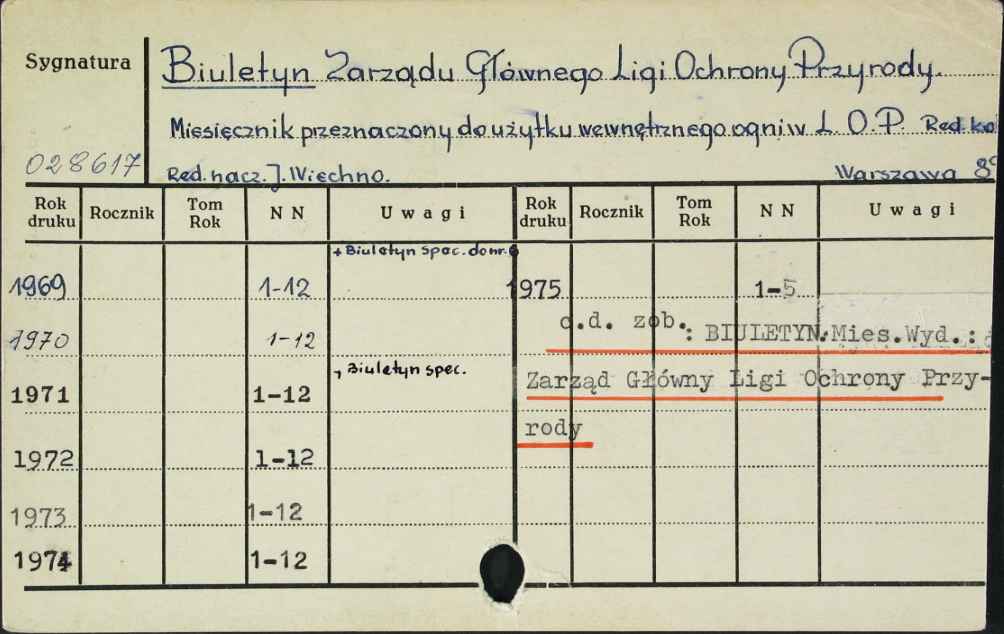 Sygnatura
Biuletyn Zarządu Głównego Ligi Ochrony Przyrody.
Miesięcznik przeznaczony do użytku wewnętrznego ogniw L.O.P. Red.
028617
Red. nacz. J. Wiechno. Warszawa
Rok druku Rocznik Tom Rok N N Uwagi Rok druku Rocznik Tom Rok N N Uwagi
+ Biuletyn spec. do nr. 6
1969 1-12 1975 1-5
c.d. zob.: BIULETYN. Mies. Wyd.:
1970 1-12
, Biuletyn spec.
1971 1-12 Zarząd Główny Ligi Ochrony Przy-
rody
1972 1-12
1973 1-12
1974 1-12